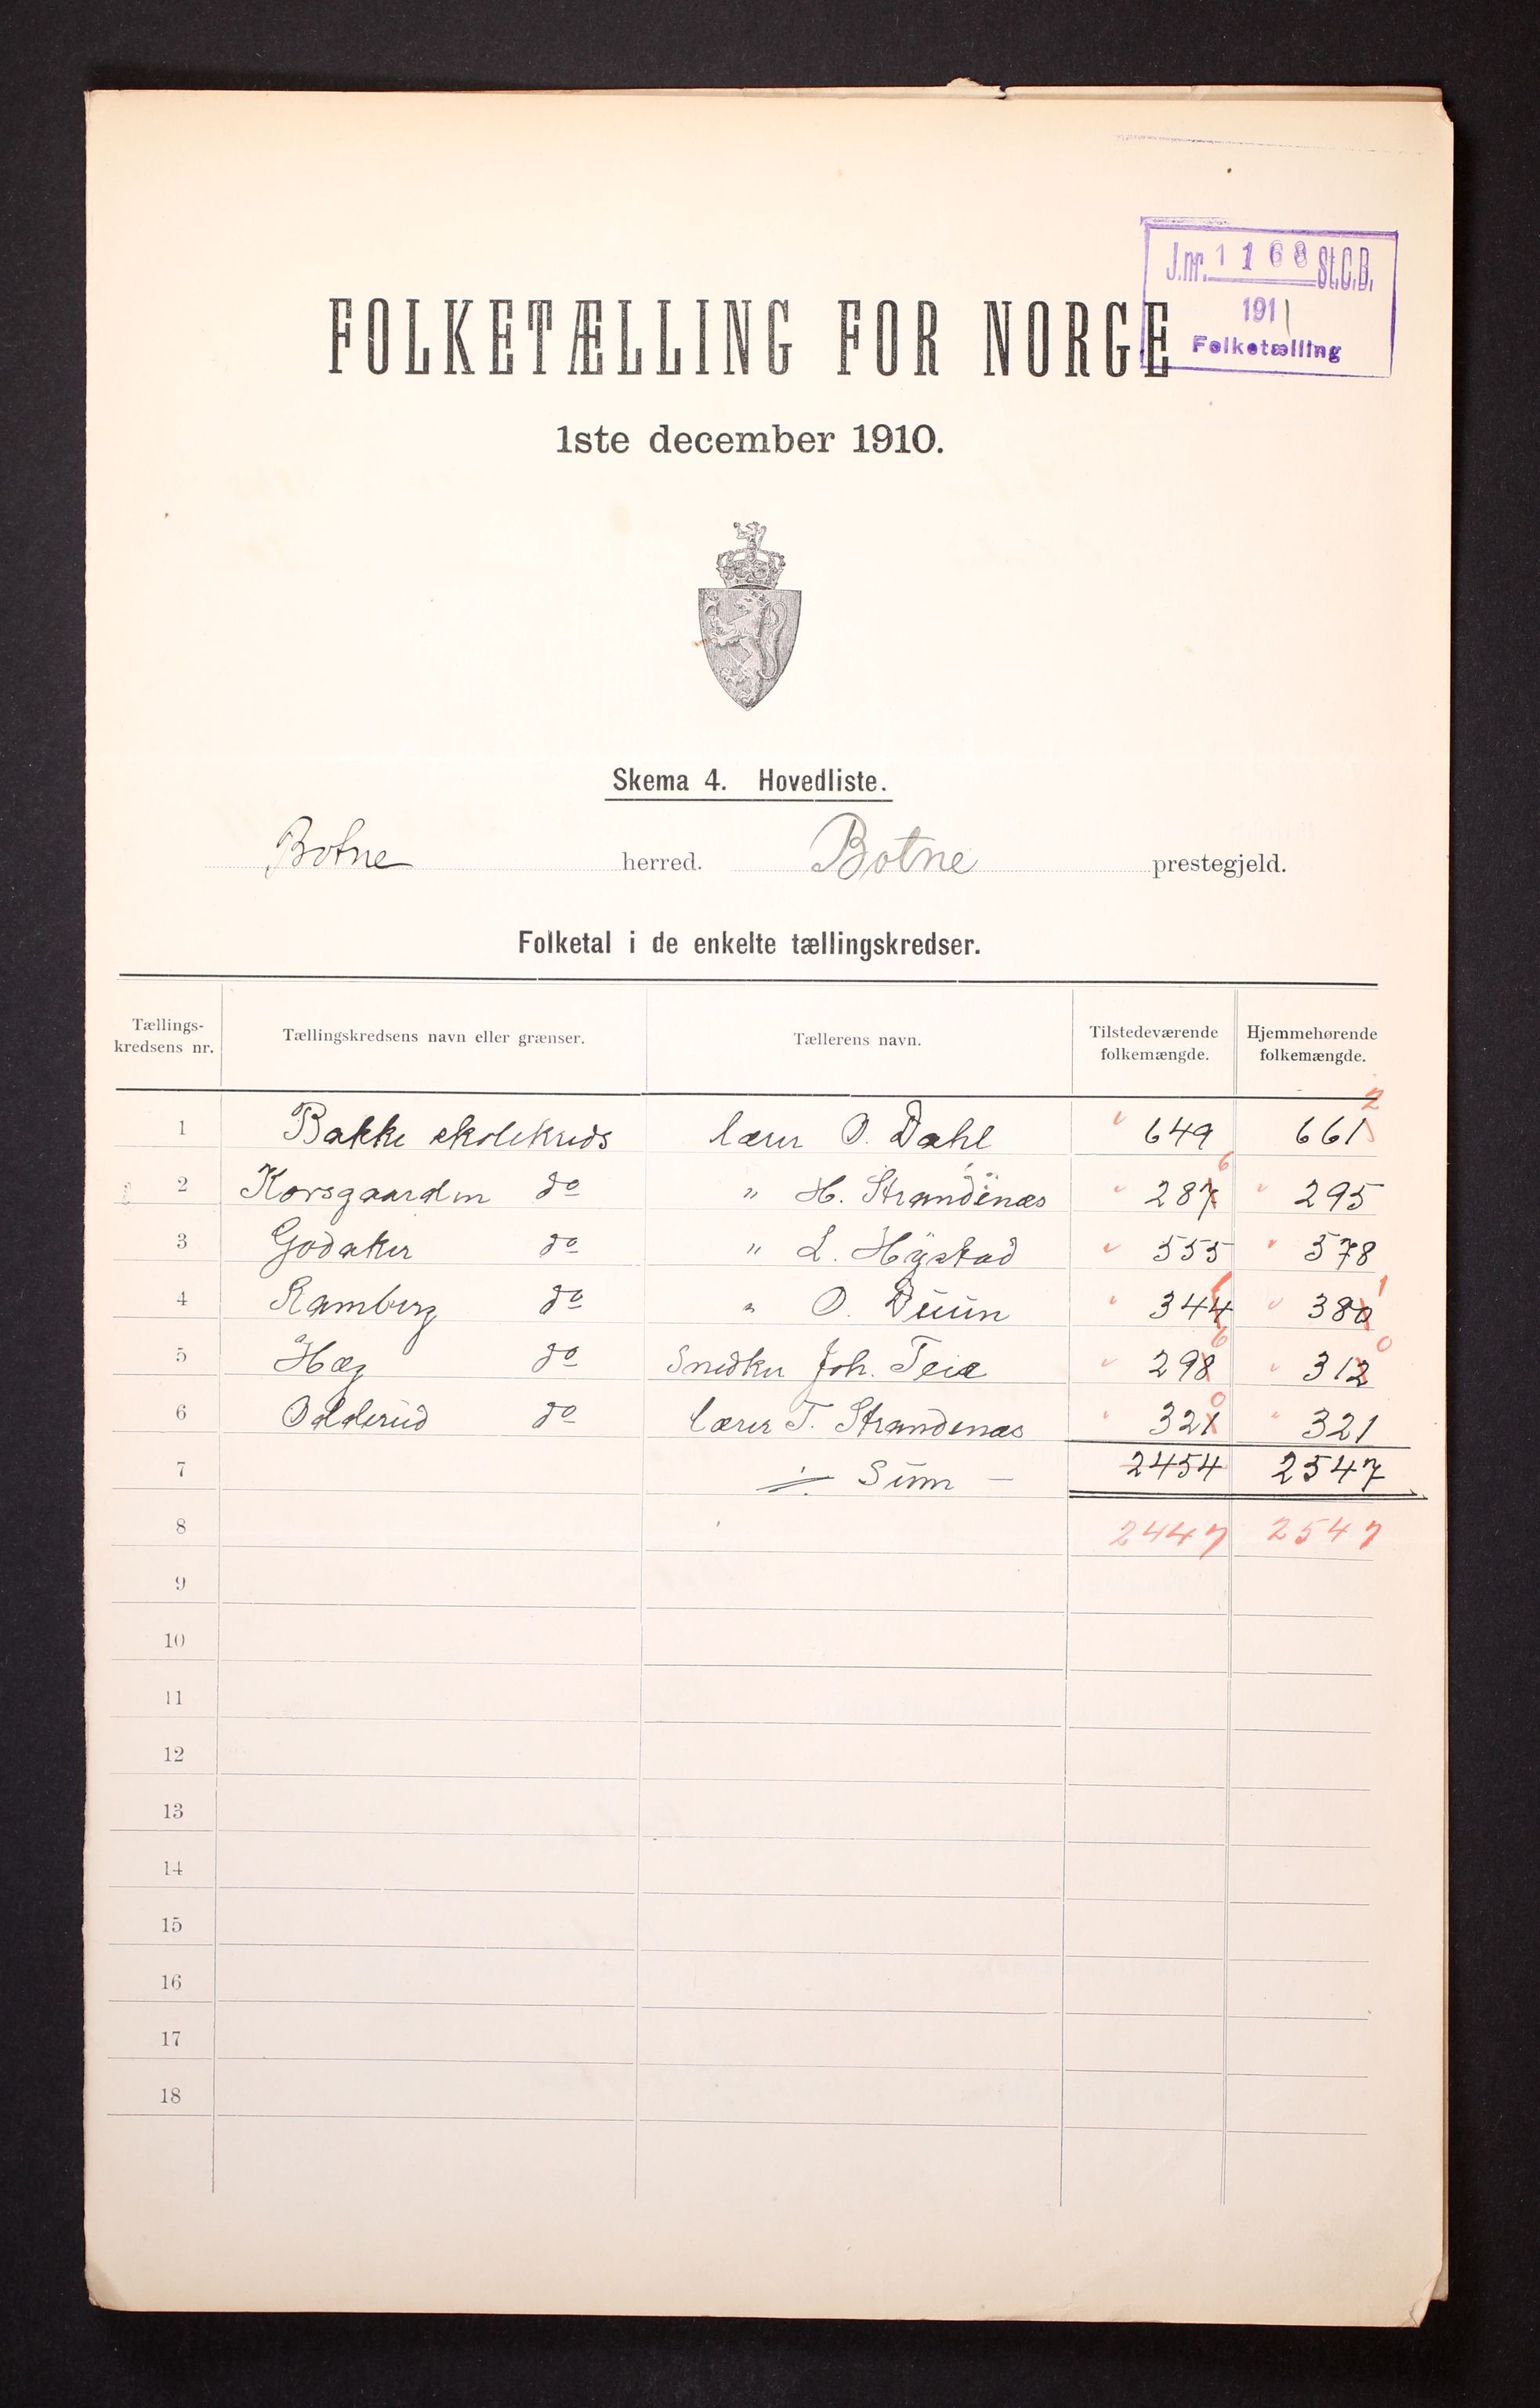 J.nr. 1168 St.C.B.
1911
Folketælling
FOLKETÆLLING FOR NORGE
1ste december 1910.
Skema 4. Hovedliste.
Botne herred. Botne prestegjeld.
Folketal i de enkelte tællingskredser.
Tællings-kredsens nr. Tællingskredsens navn eller grænser. Tællerens navn. Tilstedeværende folkemængde. Hjemmehørende folkemængde.
1 Bakke skolekreds lærer O. Dahl 649 661 2
2 Korsgaarden do " H. Strandenæs 287 6 295
3 Godaker do " L. Hystad 555 578
4 Ramberg do " O. Duun 344 1 380 1
5 Hæg do Snedker Joh. Teie 298 6 312 0
6 Odderud do lærer T. Strandenæs 321 0 321
7 Sum — 2454 2547
8 2447 2547
9
10
11
12
13
14
15
16
17
18